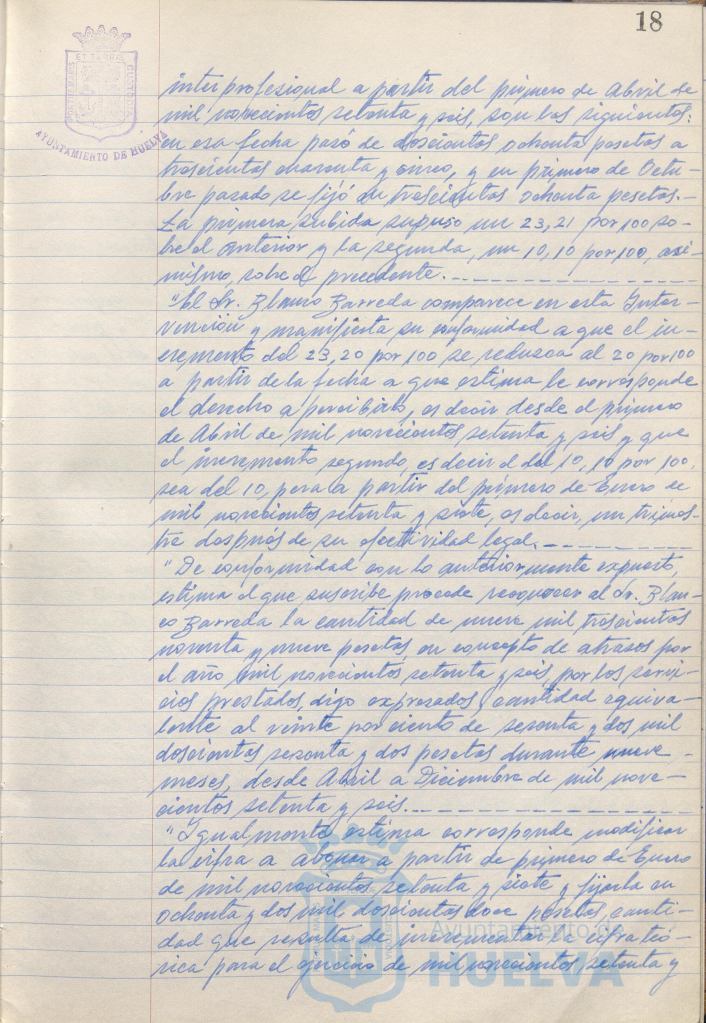 18
ET TERRAE
PORTUS MARIS
CUSTODIA
AYUNTAMIENTO DE HUELVA
interprofesional a partir del primero de Abril de
mil novecientos setenta y seis, son los siguientes:
en esa fecha pasó de doscientas ochenta pesetas a
trescientas cuarenta y cinco, y en primero de Octu-
bre pasado se fijó en trescientas ochenta pesetas.-
La primera subida supuso un 23,21 por 100 so-
bre el anterior y la segunda, un 10,10 por 100, asi-
mismo, sobre el precedente.-
"El Sr. Blanco Barreda comparece en esta Inter-
vención y manifiesta su conformidad a que el in-
cremento del 23,20 por 100 se reduzca al 20 por 100
a partir de la fecha a que estima le corresponde
el derecho a percibirlo, es decir desde el primero
de Abril de mil novecientos setenta y seis y que
el incremento segundo, es decir el del 10,10 por 100,
sea del 10, pero a partir del primero de Enero de
mil novecientos setenta y siete, es decir, un trimes-
tre después de su efectividad legal.-
"De conformidad con lo anteriormente expuesto,
estima el que suscribe procede reconocer al Sr. Blan-
co Barreda la cantidad de nueve mil trescientas
noventa y nueve pesetas en concepto de atrasos por
el año mil novecientos setenta y seis, por los servi-
cios prestados, digo expresados, cantidad equiva-
lente al veinte por ciento de sesenta y dos mil
doscientas sesenta y dos pesetas durante nueve
meses, desde Abril a Diciembre de mil nove-
cientos setenta y seis.-
"Igualmente estima corresponde modificar
la cifra a abonar a partir de primero de Enero
de mil novecientos setenta y siete y fijarla en
ochenta y dos mil doscientas doce pesetas, canti-
dad que resulta de incrementar la cifra teó-
rica para el ejercicio de mil novecientos setenta y
Ayuntamiento de
HUELVA